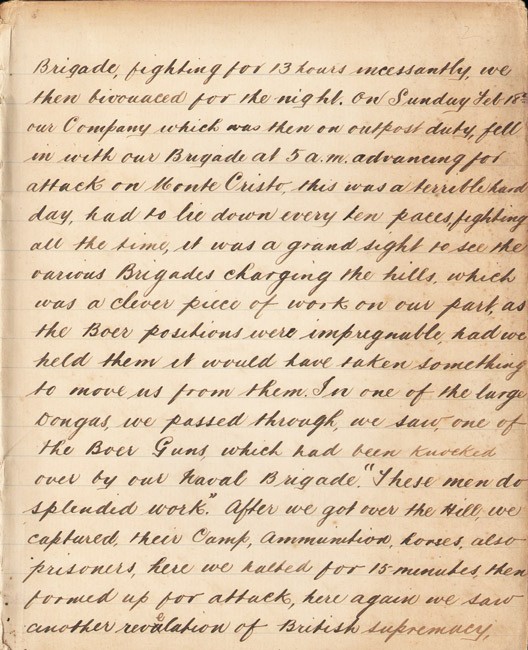 Brigade, fighting for 13 hours incessantly, we
then bivouaced for the night. On Sunday Feb 18th
our Company which was then on outpost duty, fell
in with our Brigade at 5 a.m. advancing for
attack on Monte Cristo, this was a terrible hard
day, had to lie down every ten paces, fighting
all the time, it was a grand sight to see the
various Brigades charging the hills, which
was a clever piece of work on our part, as
the Boer positions were impregnable, had we
held them it would have taken something
to move us from them. In one of the large
Dongas, we passed through, we saw, one of
the Boer Guns, which had been knocked
over by our Naval Brigade. "These men do
splendid work". After we got over the Hill, we
captured, their Camp, Ammunition, horses, also
prisoners, here we halted for 15 minutes, then
formed up for attack, here again we saw
another revealation of British supremacy,